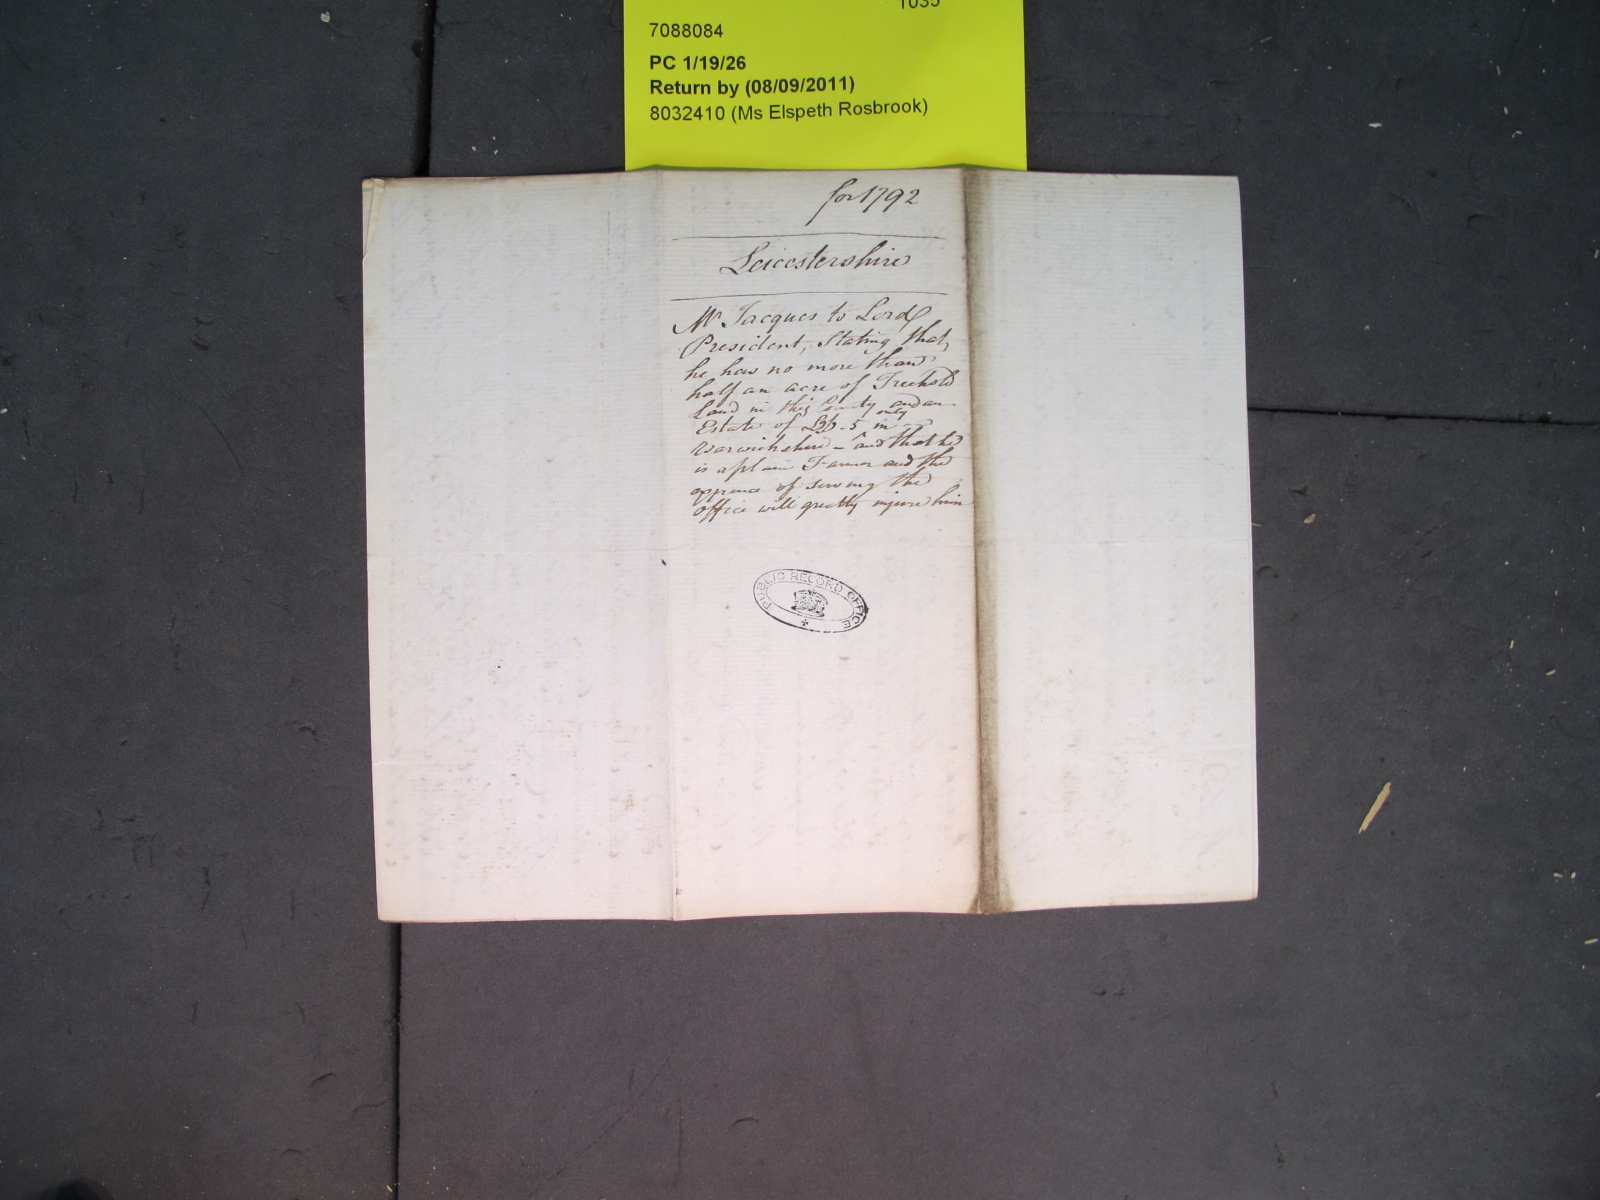 1035
7088084
PC 1/19/26
Return by (08/09/2011)
8032410 (Ms Elspeth Rosbrook)
for 1792
Leicestershire
Mr Jacques to Lord
President, Stating that,
he has no more than
half an acre of Freehold
Land in this County and an
Estate of only in
Warwickshire - and that he
is a plain Farmer and the
of serving the
office will greatly injure him
PUBLIC RECORD OFFICE